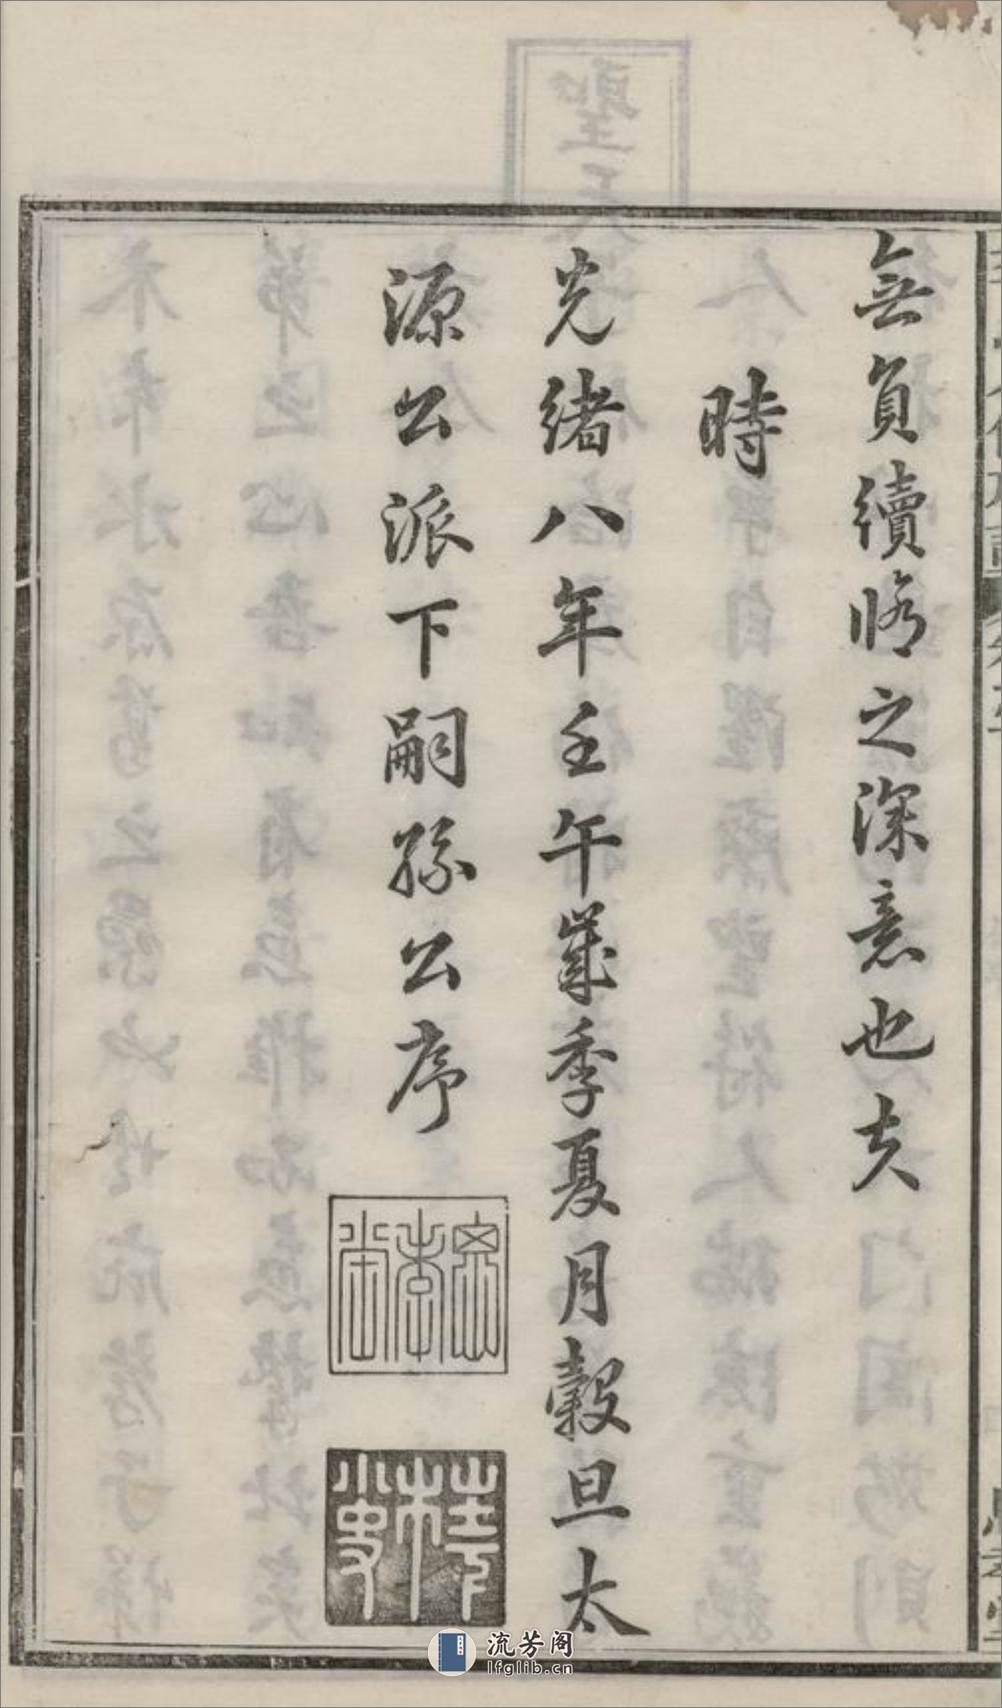 無負續脩之深意也夫
時
光緒八年壬午歲季夏月穀旦太
源公派下嗣孫公序
流芳阁
lfglib.cn